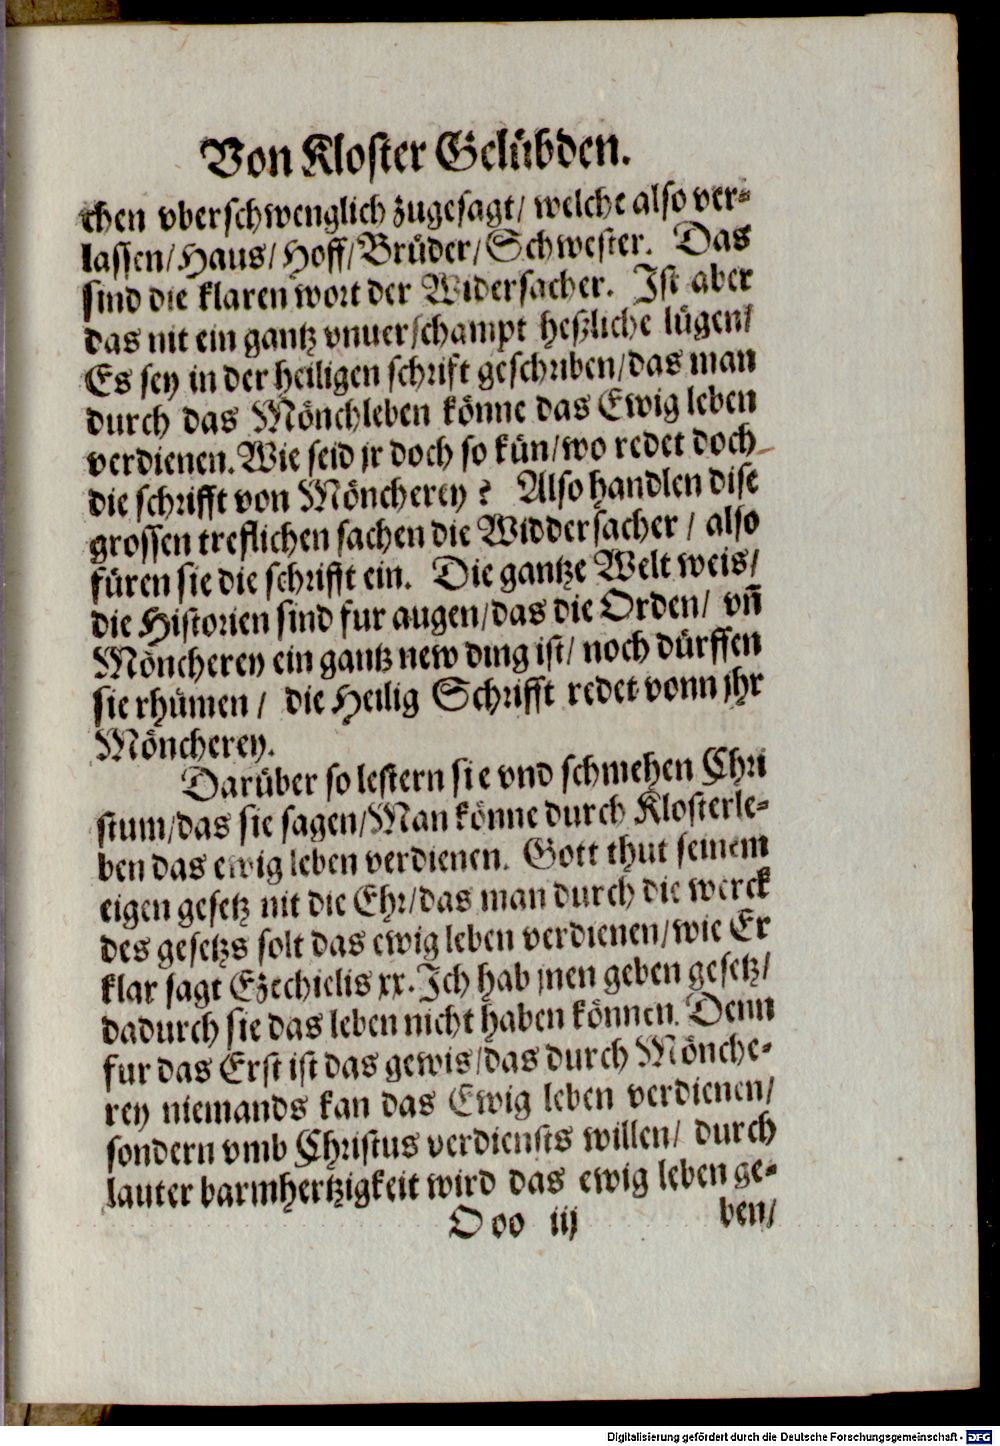 Von Kloster Gelübden.
chen vberschwenglich zugesagt/ welche also ver-
lassen/Haus/Hoff/Brüder/Schwester. Das
sind die klaren wort der Widersacher. Ist aber
das nit ein gantz vnuerschampt heßliche lügen/
Es sey in der heiligen schrift geschriben/das man
durch das Mönchleben könne das Ewig leben
verdienen. Wie seid jr doch so kün/wo redet doch
die schrifft von Möncherey? Also handlen dise
grossen treflichen sachen die Widdersacher / also
füren sie die schrifft ein. Die gantze Welt weis/
die Historien sind fur augen/das die Orden/ vñ
Möncherey ein gantz new ding ist/ noch dürffen
sie rhümen / die Heilig Schrifft redet vonn jhr
Möncherey.
Darüber so lestern sie vnd schmehen Chri
stum/das sie sagen/Man könne durch Klosterle-
ben das ewig leben verdienen. Gott thut seinem
eigen gesetz nit die Ehr/das man durch die werck
des gesetzs solt das ewig leben verdienen/wie Er
klar sagt Ezechielis xx. Ich hab jnen geben gesetz/
dadurch sie das leben nicht haben können. Denn
fur das Erst ist das gewis/das durch Mönche-
rey niemands kan das Ewig leben verdienen/
sondern vmb Christus verdiensts willen/ durch
lauter barmhertzigkeit wird das ewig leben ge-
Ooo iij ben/
Digitalisierung gefördert durch die Deutsche Forschungsgemeinschaft - DFG